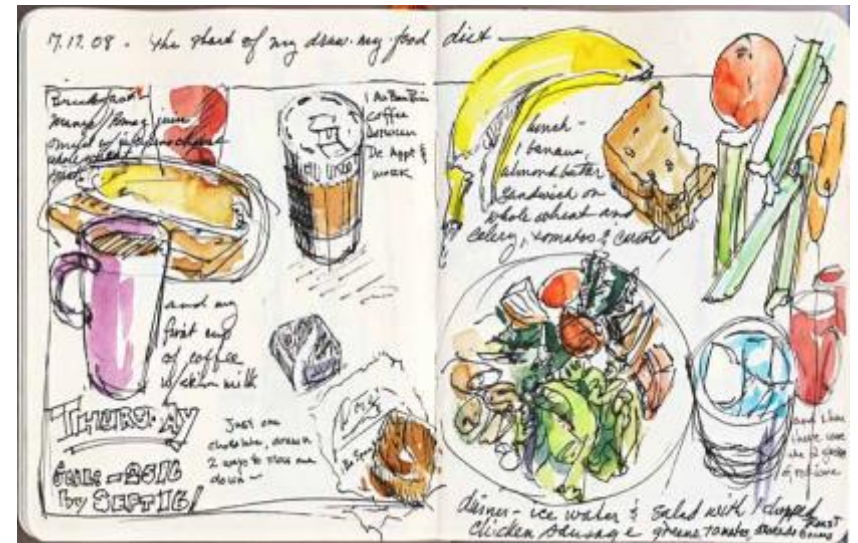 17.17.08. The start of my draw-my-food diet—
Breakfast
omelet w/
whole wheat
toast
1 Au Bon Pain
coffee
between
Dr. Appt &
work
and my
first cup
of coffee
w/ skim milk
THURSDAY
GOALS -25 lb
by SEPT 16!
Just one
chocolate, drawn
2 ways to slow me
down—
lunch-
1 banana
almond butter
sandwich on
whole wheat and
celery, tomatoes & carrots
and then
there were
the 2 glasses
of red wine
dinner- ice water & salad with 1 chopped
chicken sausage greens, tomatoes, avocado